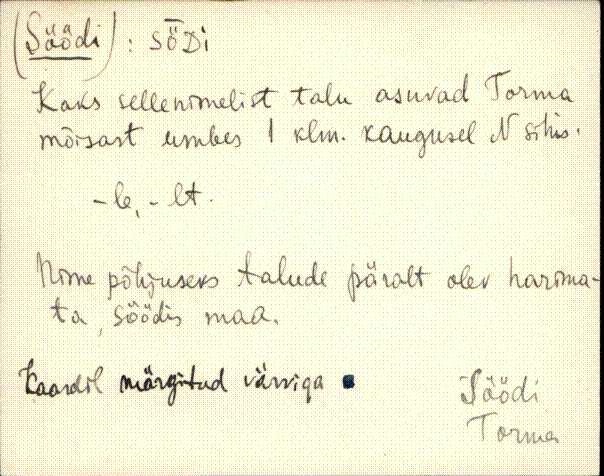 (Söödi) : sȫDi
Kaks sellenimelist talu asuvad Torma
mõisast umbes 1 klm. kaugusel N sihis.
-le, -lt.
Nime põhjuseks talude päralt olev harima-
ta, söödis maa.
Kaardil märgitud värviga
Söödi
Torma